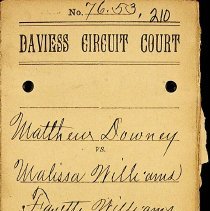 No. 7653, 210
DAVIESS CIRCUIT COURT
Matthew Downey
vs.
Malissa Williams
Fayette Williams